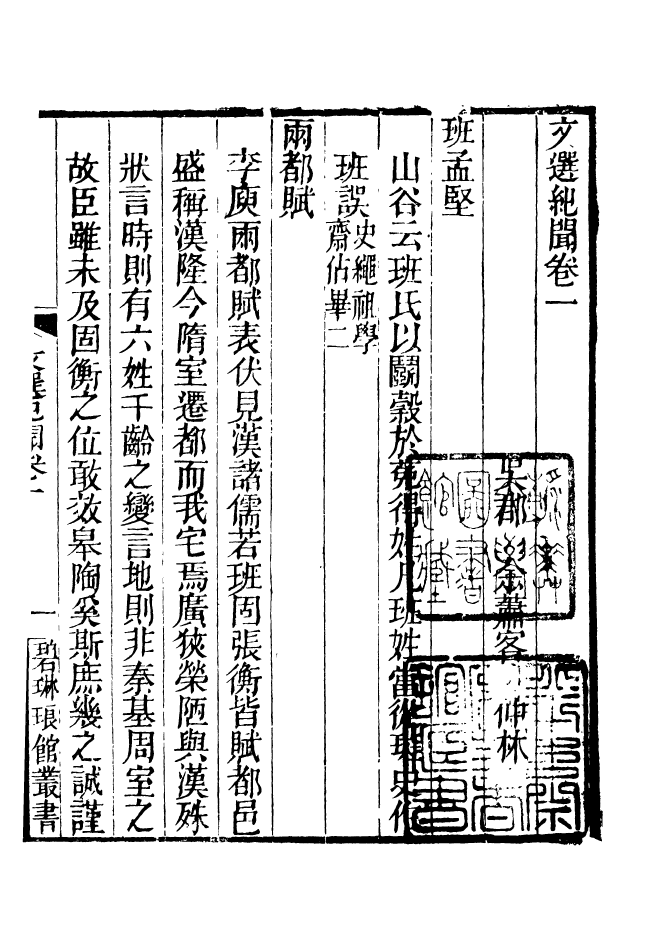 文選紀聞卷一
吳郡余蕭客仲林
班孟堅
山谷云班氏以鬭穀於菟得姓凡班姓當從斑史作
班誤史繩祖學
齋佔畢二
兩都賦
李庾兩都賦表伏見漢諸儒若班固張衡皆賦都邑
盛稱漢隆今隋室遷都而我宅焉廣狹榮陋與漢殊
狀言時則有六姓千齡之變言地則非秦基周室之
故臣雖未及固衡之位敢效皋陶奚斯庶幾之誠謹
文選紀聞卷一
一
碧琳琅館叢書